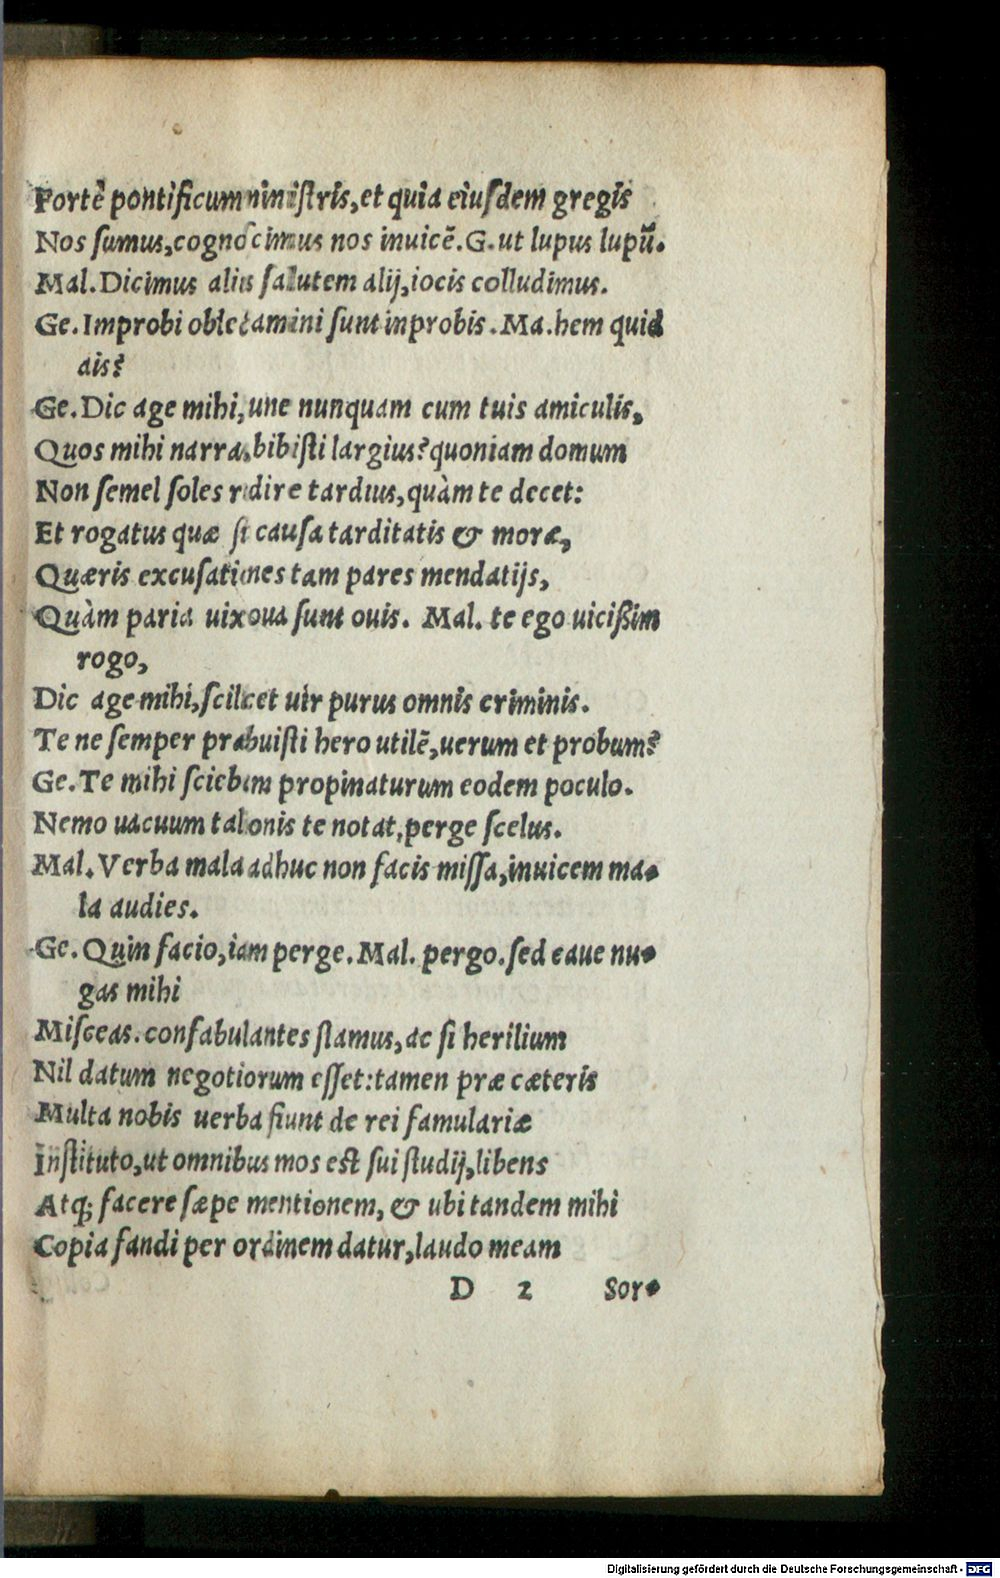 Fortè pontificum ministris, et quia eiusdem gregis
Nos sumus, cognoscimus nos inuicē. G. ut lupus lupū.
Mal. Dicimus alius salutem alij, iocis colludimus.
Ge. Improbi oblectamini sunt inprobis. Ma. hem quid
ais?
Ge. Dic age mihi, une nunquam cum tuis amiculis,
Quos mihi narras, bibisti largius? quoniam domum
Non semel soles redire tardius, quàm te decet:
Et rogatus quæ sit causa tarditatis & moræ,
Quæris excusationes tam pares mendatijs,
Quàm paria uix oua sunt ouis. Mal. te ego uicißim
rogo,
Dic age mihi, scilicet uir purus omnis criminis.
Te ne semper præbuisti hero utilē, uerum et probum?
Ge. Te mihi sciebam propinaturum eodem poculo.
Nemo uacuum talonis te notat, perge scelus.
Mal. Verba mala adhuc non facis missa, inuicem ma-
la audies.
Ge. Quin facio, iam perge. Mal. pergo. sed caue nu-
gas mihi
Misceas. confabulantes stamus, ac si herilium
Nil datum negotiorum esset: tamen præ cæteris
Multa nobis uerba fiunt de rei famulariæ
Instituto, ut omnibus mos est sui studij, libens
Atq; facere sæpe mentionem, & ubi tandem mihi
Copia fandi per ordinem datur, laudo meam
D 2 Sor-
Digitalisierung gefördert durch die Deutsche Forschungsgemeinschaft - DFG